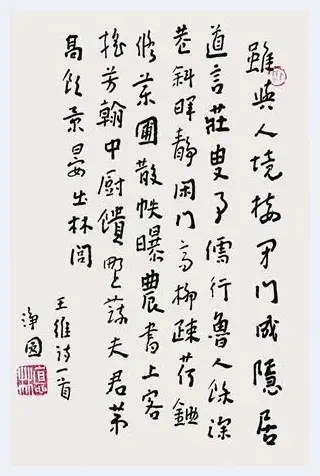 雖與人境接閉門成隱居
道言莊叟事儒行魯人餘深
巷斜暉靜閑門高柳疎荷鋤
修藥圃散帙曝農書上客
搖芳翰中廚饋野蔬夫君第
高飲景晏出林閭
王維詩一首
淨